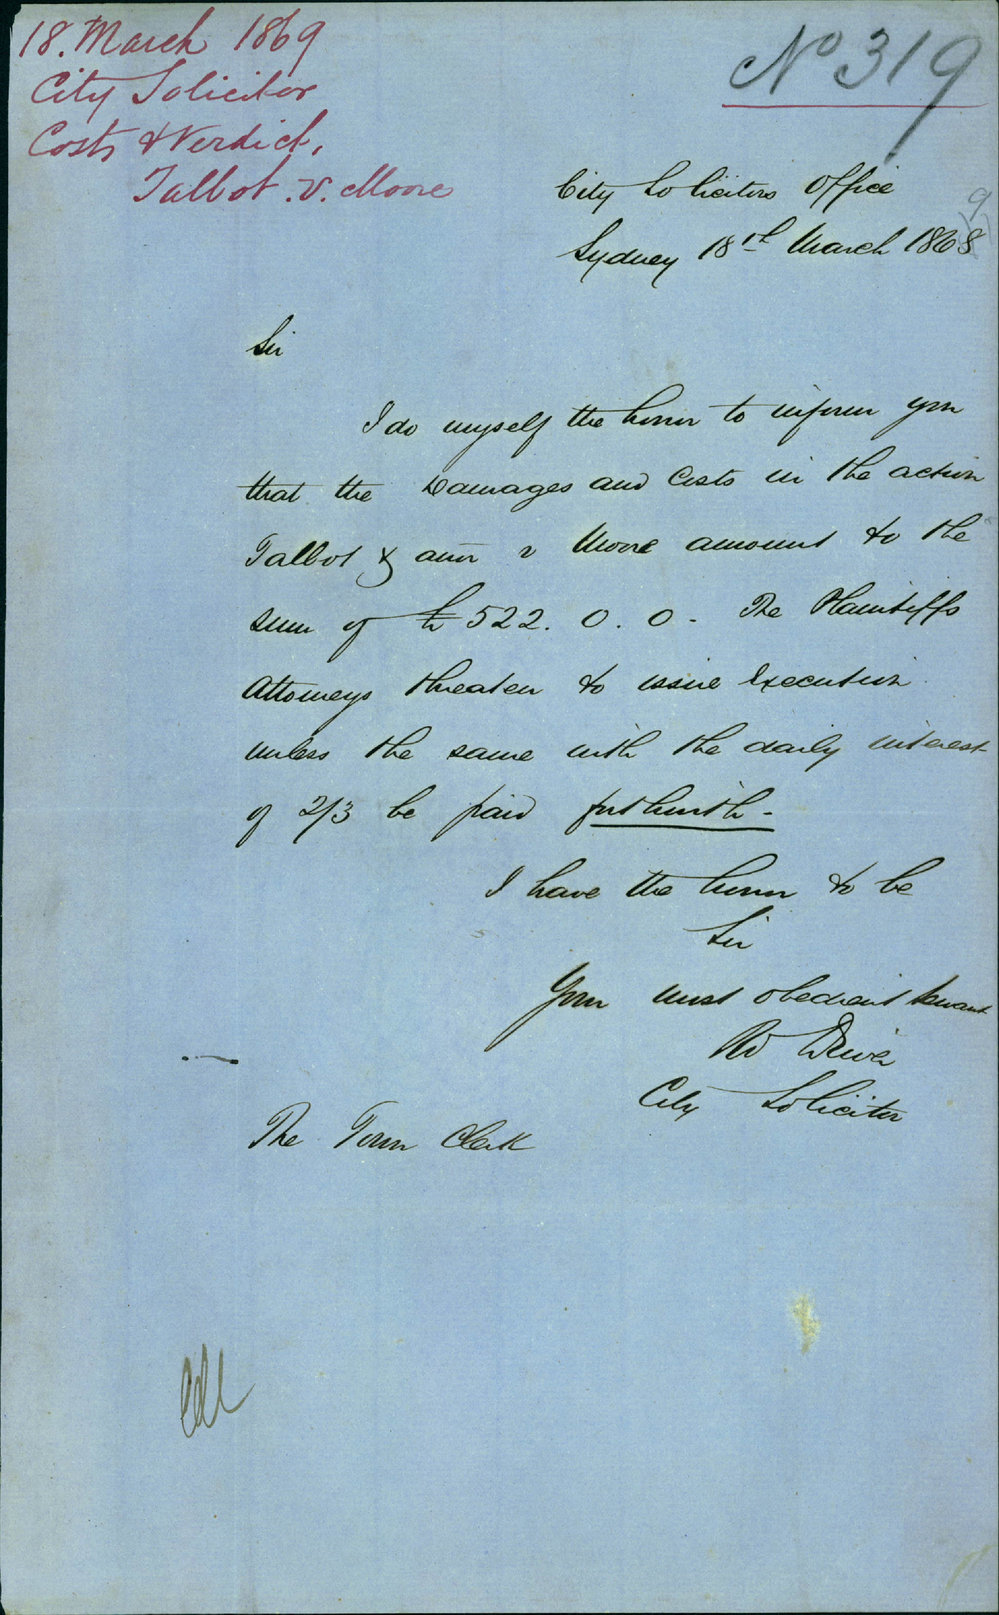 18. March 1869
City Solicitor
Costs & Verdict,
Talbot .v. Moore
No 319
City Solicitors Office
9
Sydney 18th March 1868
Sir
I do myself the honor to inform you
that the Damages and Costs in the action
Talbot & anor v Moore amount to the
sum of £522. 0. 0. The Plaintiffs
Attorneys threaten to issue Execution
unless the same with the daily interest
of 2/3 be paid forthwith -
I have the honor to be
Sir
Your most obedient servant
City Solicitor
The Town Clerk